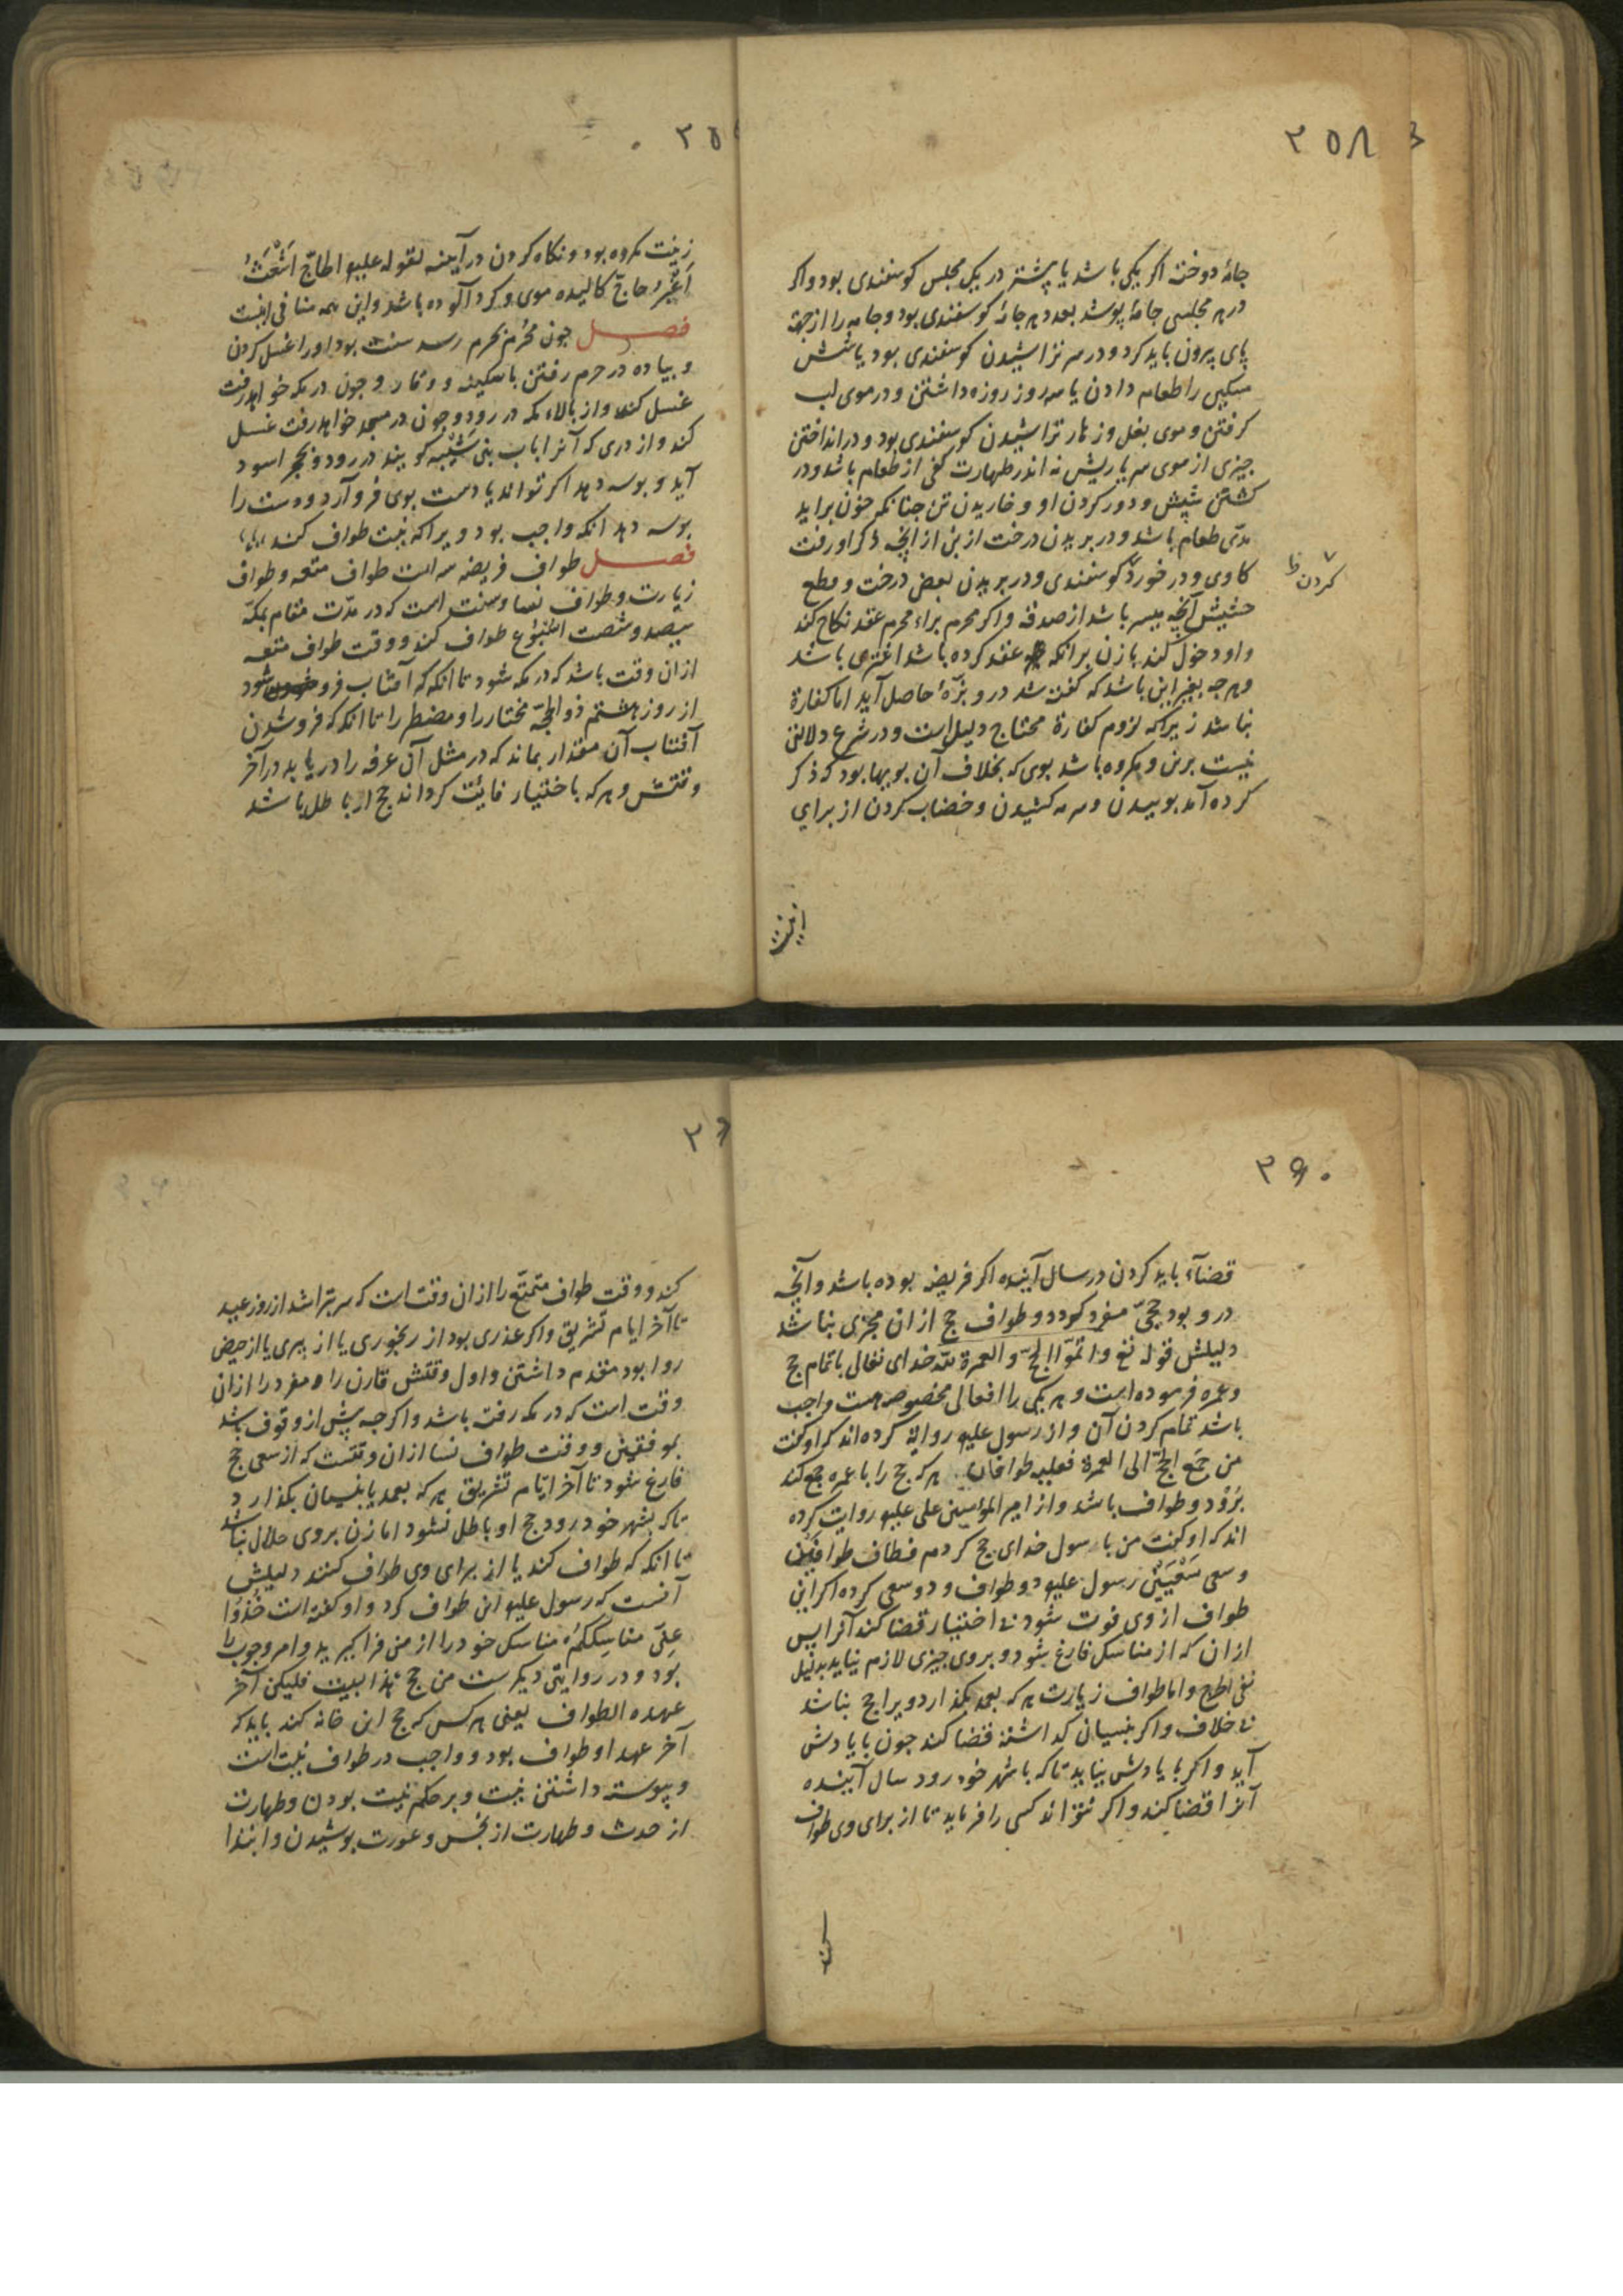 ۲۵۸
جامهٔ دوخته اکر یکی باشد یا پیشتر در یک مجلس کوسفندی بود واکر
در هر مجلسی جامهٔ پوشد بعدد هر جامهٔ کوسفندی بود و جامه را از جهة
پای بیرون باید کرد و در سر تراشیدن کوسفندی بود یا شش
مسکین را طعام دادن یا سه روز روزه داشتن و در موی لب
کرفتن و موی بغل و زهار تراشیدن کوسفندی بود و در انداختن
چیزی از موی سر یا ریش نه اندر طهارت کفی از طعام باشد و در
کشتن شپش و دور کردن او و خاریدن تن چنانکه خون براید
مدّی طعام باشد و در بریدن درخت از بن از آنچه ذکر او رفت
کاوی و در خورد کوسفندی و در بریدن بعض درخت و قطع
کردن ظ
حشیش آنچه میسر باشد از صدقه واکر محرم براء محرم عقد نکاح کند
واو دخول کند با زن برانکه عقد کرده باشد اشتری باشد
و هر چه بغیر این باشد که کفته شد درو بزهٔ حاصل آید اما کفارة
نباشد زیراکه لزوم کفارة محتاج دلیل است و در شرع دلالتی
نیست برین و مکروه باشد بوی که بخلاف آن بویها بود که ذکر
کرده آمد بوییدن و سرمه کشیدن و خضاب کردن از برای
زینت
۲۵
زینت مکروه بود و نکاه کردن در آینه لقوله علیه الحاجّ اَشْعَثُ
اَغْبَرُ حاجّ کالیده موی و کرد آلوده باشد واین همه منافی اینست
فصل چون محرم بحرم رسد سنت بود او را غسل کردن
و پیاده در حرم رفتن با سکینه و وقار و چون در مکه خواهد رفت
غسل کند و از بالاء مکه در رود و چون در مسجد خواهد رفت غسل
کند و از دری که آنرا باب بنی شَیْبَه کویند در رود و بحجر اسود
آید و بوسه دهد اکر تواند یا دست بوی فرو آرد و دست را
بوسه دهد انکه واجب بود ویرا که نیت طواف کند
فصل طواف فریضه سه است طواف متعه و طواف
زیارت و طواف نسا و سنت است که در مدّت مقام بمکه
سیصد و شصت اُسْبُوع طواف کند و وقت طواف متعه
از ان وقت باشد که در مکه شود تا انکه که آفتاب فرو شود
از روز هشتم ذو الحجّه مختار را و مضطر را تا انکه که فرو شدن
آفتاب آن مقدار بماند که در مثل آن عرفه را دریابد در آخر
وقتش و هر که باختیار فائت کرداند حج او باطل باشد
۲۶۰
قضاءً باید کردن در سال آینده اکر فریضه بوده باشد وآنچه
درو بود حجّی مفرد کردد و طواف حج از ان مجزی نباشد
دلیلش قوله تع واتمّوا الحجّ والعمرة للّه خدای تعالی باتمام حج
و عمره فرموده است و هر یکی را افعالی مخصوص هست واجب
باشد تمام کردن آن و از رسول علیه روایة کرده اند که او کفت
من جَمَع الحجّ الی العمرة فعلیه طوافان هر که حج را با عمره جمع کند
برو دو طواف باشد و از امیر المؤمنین علی علیه روایت کرده
اند که او کفت من با رسول خدای حج کردم فطاف طوافین
وسعی سَعْیَیْن رسول علیه دو طواف و دو سعی کرد اکر این
طواف از وی فوت شود نه اختیار قضا کند آنرا پس
از ان که از مناسک فارغ شود و بر وی چیزی لازم نیاید بدلیل
نفی الحرج واما طواف زیارت هر که بعمد بکذارد ویرا حج نباشد
نه خلاف واکر بنسیان کذاشته قضا کند چون با یادش
آید و اکر با یادش نیاید تا که با شهر خود رود سال آینده
آنرا قضا کند واکر نتواند کسی را فرماید تا از برای وی طواف
کند
۲۶
کند و وقت طواف متمتّع را از ان وقت است که سر بتراشد از روز عید
تا آخر ایام تشریق واکر عذری بود از رنجوری یا از پیری یا از حیض
روا بود مقدم داشتن و اول وقتش قارن را و مفرد را از ان
وقت است که در مکه رفت باشد واکرچه پیش از وقوف باشد
بموقفین و وقت طواف نسا از ان وقتست که از سعی حج
فارغ شود تا آخر ایّام تشریق هر که بعمد یا بنسیان بکذارد
تا که بشهر خود رود حج او باطل نشود اما زن بر وی حلال نباشد
تا انکه که طواف کند یا از برای وی طواف کنند دلیلش
آنست که رسول علیه این طواف کرد و او کفته است خُذوُا
عنّی مناسِکَکُم مناسک خود را از من فرا کیرید و امر وجوب را
بود و در روایتی دیکرست من حج هذا البیت فلیکن آخر
عهده الطواف یعنی هر کس که حج این خانه کند باید که
آخر عهد او طواف بود و واجب در طواف نیت است
و پیوسته داشتن نیت و بر حکم نیت بودن و طهارت
از حدث و طهارت از نجس و عورت پوشیدن و ابتدا